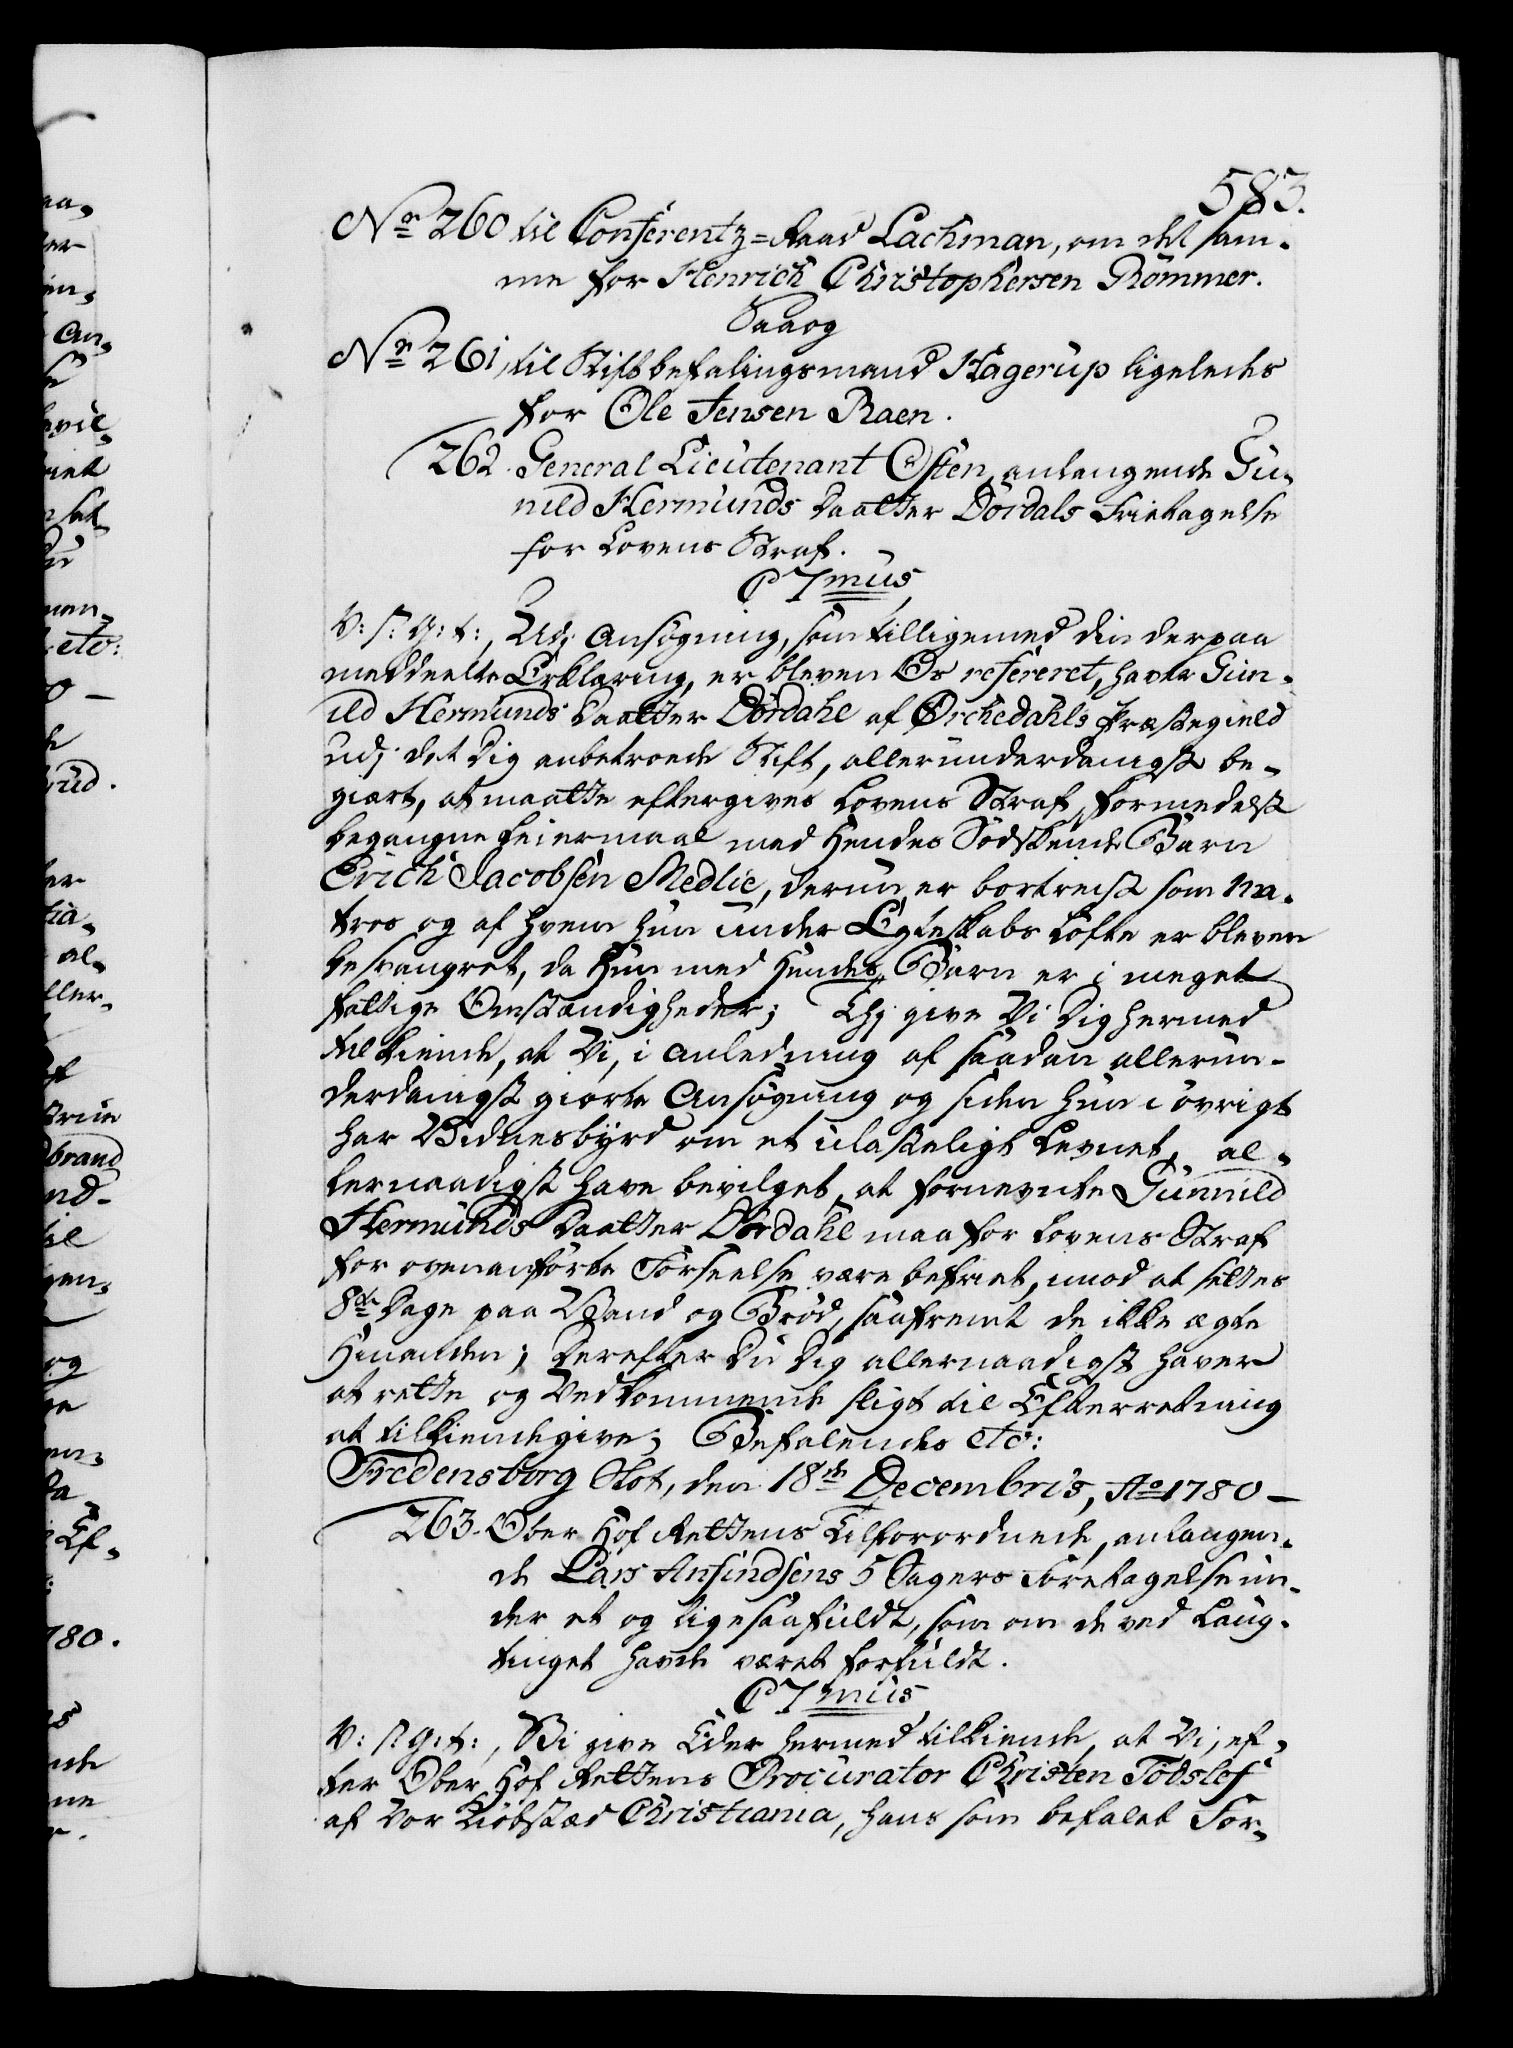 583.
No 260 til Conferentz=Raad Lachman, om det sam-
me for Henrich Christophersen Römmer.
Saaog
No 261, til Stiftbefalingsmand Hagerup ligeledes
for Ole Jensen Raen.
262. General Lieutenant Osten, anlangende Gu-
nild Hermunds Daatter Dördals Frietagelse
for Lovens Straf.
C 7mus
V: S: G: t:, Udj Ansögning, som tilligemed din derpaa
meddeelte Erklæring, er bleven Os refereret, haver Gun-
ild Hermunds Daatter Dördahl af Örchedahls Præstegield
udj det Dig anbetroede Stift, allerunderdanigst be-
giært, at maatte eftergives Lovens Straf, formedelst
begangne Leiermaal med Hendes Södskende Barn
Erich Jacobsen Medlie, der nu er bortreist som Ma-
tros og af hvem hun under Egteskabs Löfte er bleven
besvangret, da Hun med Hendes Barn er i meget
fattige Omstændigheder; Thj give Vi Dig hermed
tilkiende, at Vi, i Anledning af saadan allerun-
derdanigst giorte Ansögning og siden hun i övrigt
har Vidnesbyrd om et ulasteligt Levnet, al-
lernaadigst have bevilget, at fornevnte Gunnild
Hermunds Daatter Dördahl maa for Lovens Straf
for ovenanförte Forseelse være befriet, imod at settes
8te Dage paa Vand og Bröd, saafremt de ikke ægte
Hinanden; Derefter Du Dig allernaadigst haver
at rette og Vedkommende sligt til Efterretning
at tilkiendegive; Befalendes etc:
Fredensborg Slot, den 18de Decembris, Ao 1780 –
263. Ober Hof Rettens Tilforordnede, anlangen-
de Lars Ansindsens 5 Sagers Foretagelse un-
der et og ligesaafuldt, som om de ved Laug-
tinget havde været forfuldt.
C 7mus
V: S: G: t:, Vi give Eder hermed tilkiende, at Vi, ef-
ter Ober Hof Rettens Procurator Christen Todslef
af Vor Kiöbstæd Christiania, hans som befalet For-